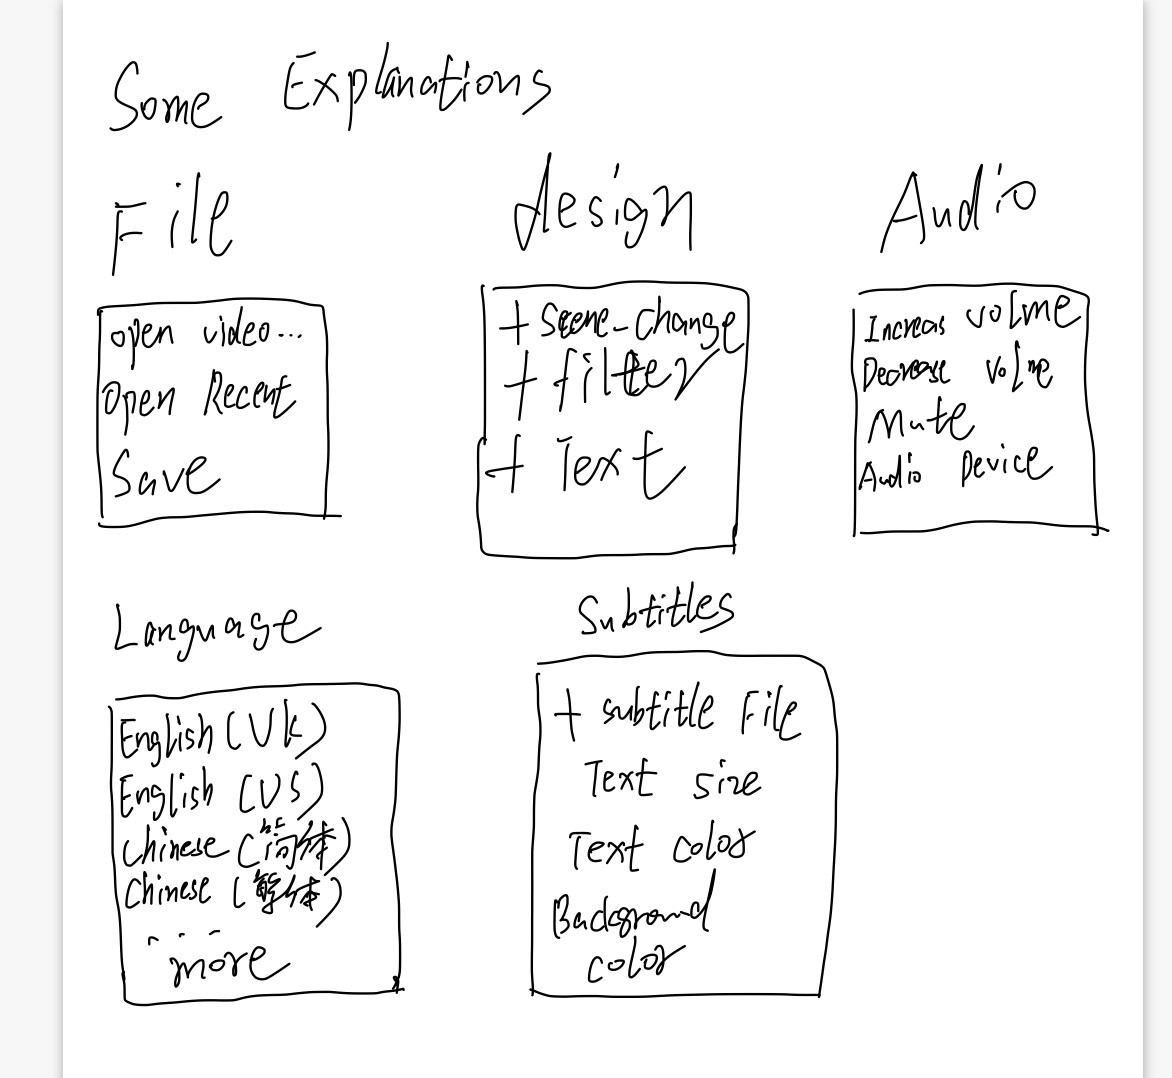 Some Explanations
File
open video...
Open Recent
Save
design
+ Scene-change
+ filter
+ Text
Audio
Increas volme
Decrease volme
Mute
Audio Device
Language
English (UK)
English (US)
Chinese (简体)
Chinese (繁体)
... more
Subtitles
+ subtitle File
Text size
Text color
Background
color